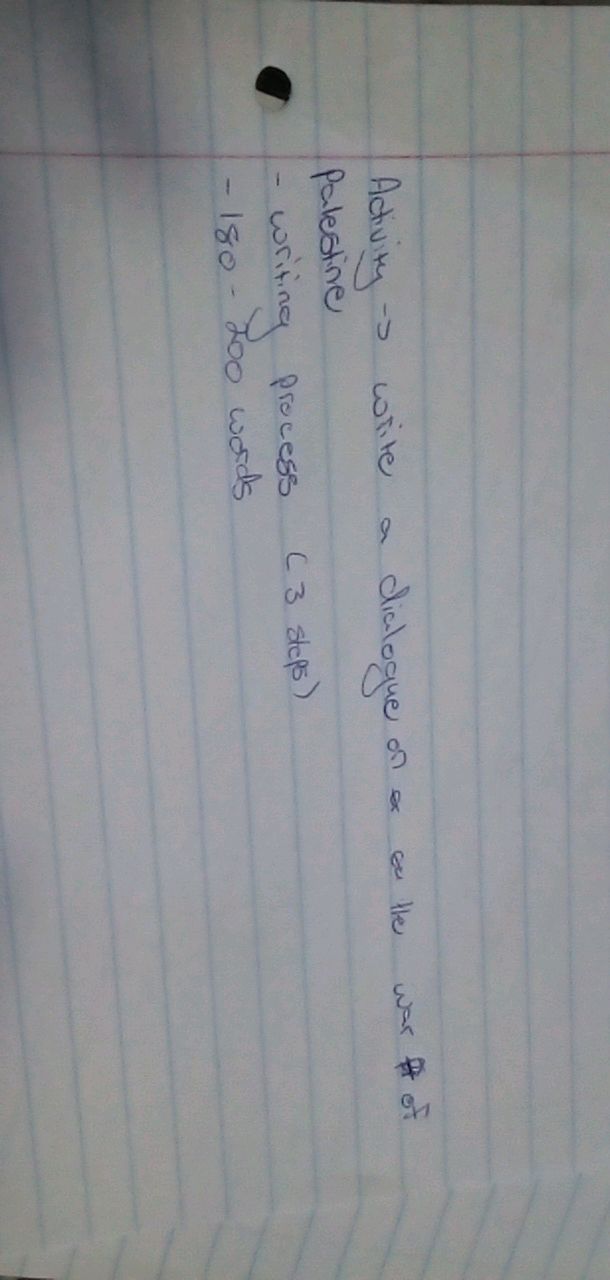 Activity -> write a dialogue on on the war of
Palestine
- writing process (3 steps)
- 180 - 200 words